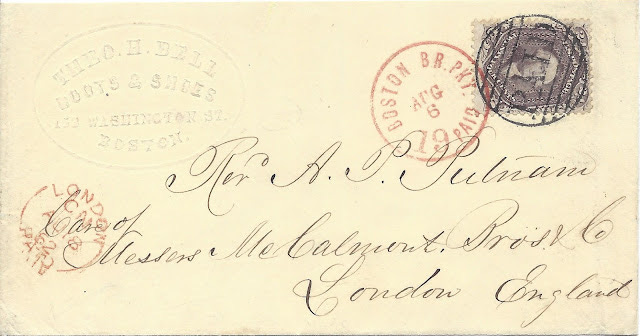 THEO. H. BELL
BOOTS & SHOES
WASHINGTON ST.
BOSTON.
BOSTON BR. PKT.
AUG
6
19 PAID
PAID
Revd A. P. Putnam
Care of
Messers McCalmont, Bros. & Co
London England
LONDON
PAID